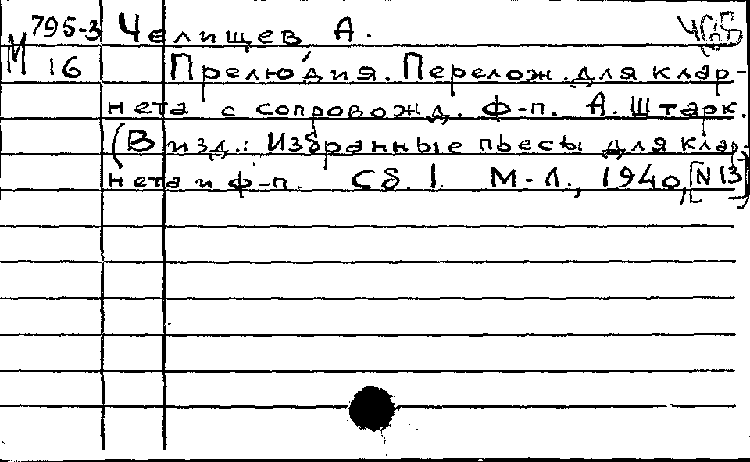 М 795-3 Челищев, А.
16 Прелюдия. Перелож. для клар-
нета с сопровожд. ф-п. А. Штарк.
(В изд.: Избранные пьесы дляклар-
нета и ф-п. Сб. 1. М-Л., 1940, [N 13])